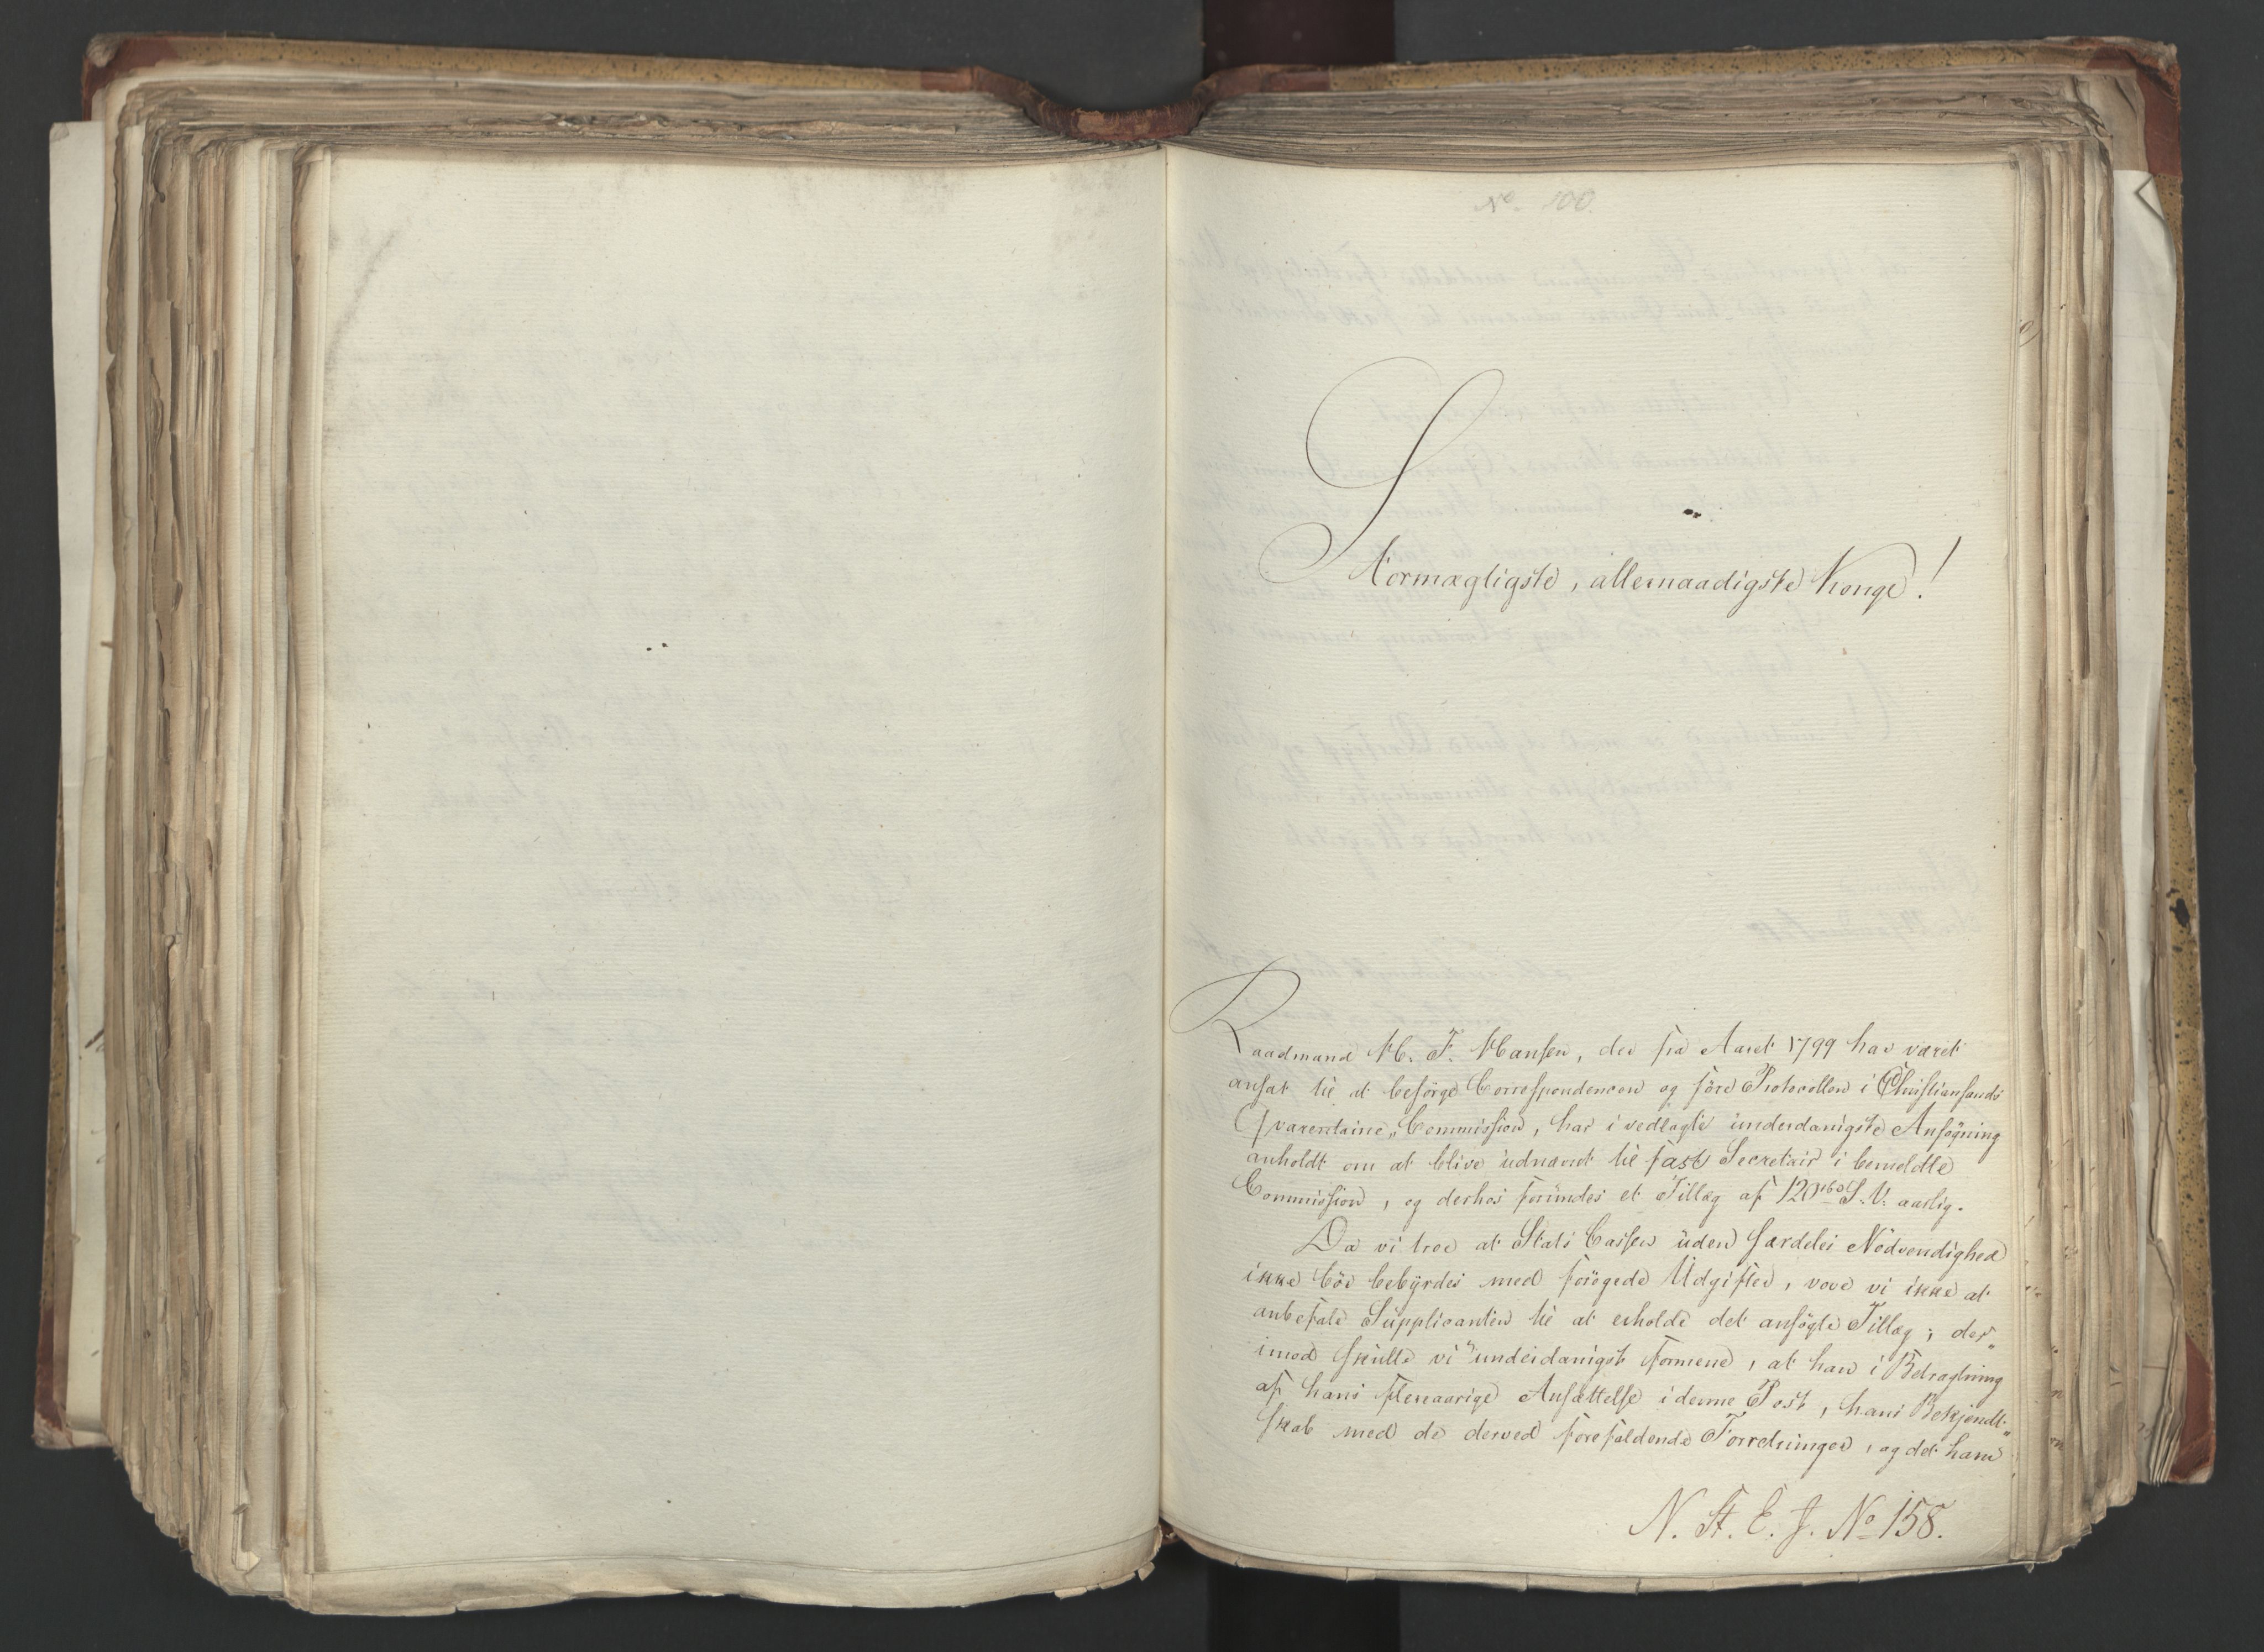 No. 100.
Stormægtigste, allernaadigste Konge!
Raadmand H. F. Hansen, der fra Aaret 1799 har været
ansat til at besörge Correspondencen og före Protocollen i Christiansands
Qvarentaine„Commission, har i vedlagte underdanigste Ansögning
anholdt om at blive udnævnt til fast Secretair i bemeldte
Commission, og derhos forundes et Tillæg af 120 rbd S. V. aarlig.
Da vi troe at Stats Cassen uden særdeles Nödvendighed
ikke bör bebyrdes med forögede Udgifter, vove vi ikke at
anbefale Supplicanten til at erholde det ansögte Tillæg; der„
imod skulle vi underdanigst formene, at han i Betragtning
af hans fleraarige Ansættelse i denne Post, hans Bekjendt„
skab med de derved forefaldende Forretninger, og det ham
N. St. E. J. No 158.